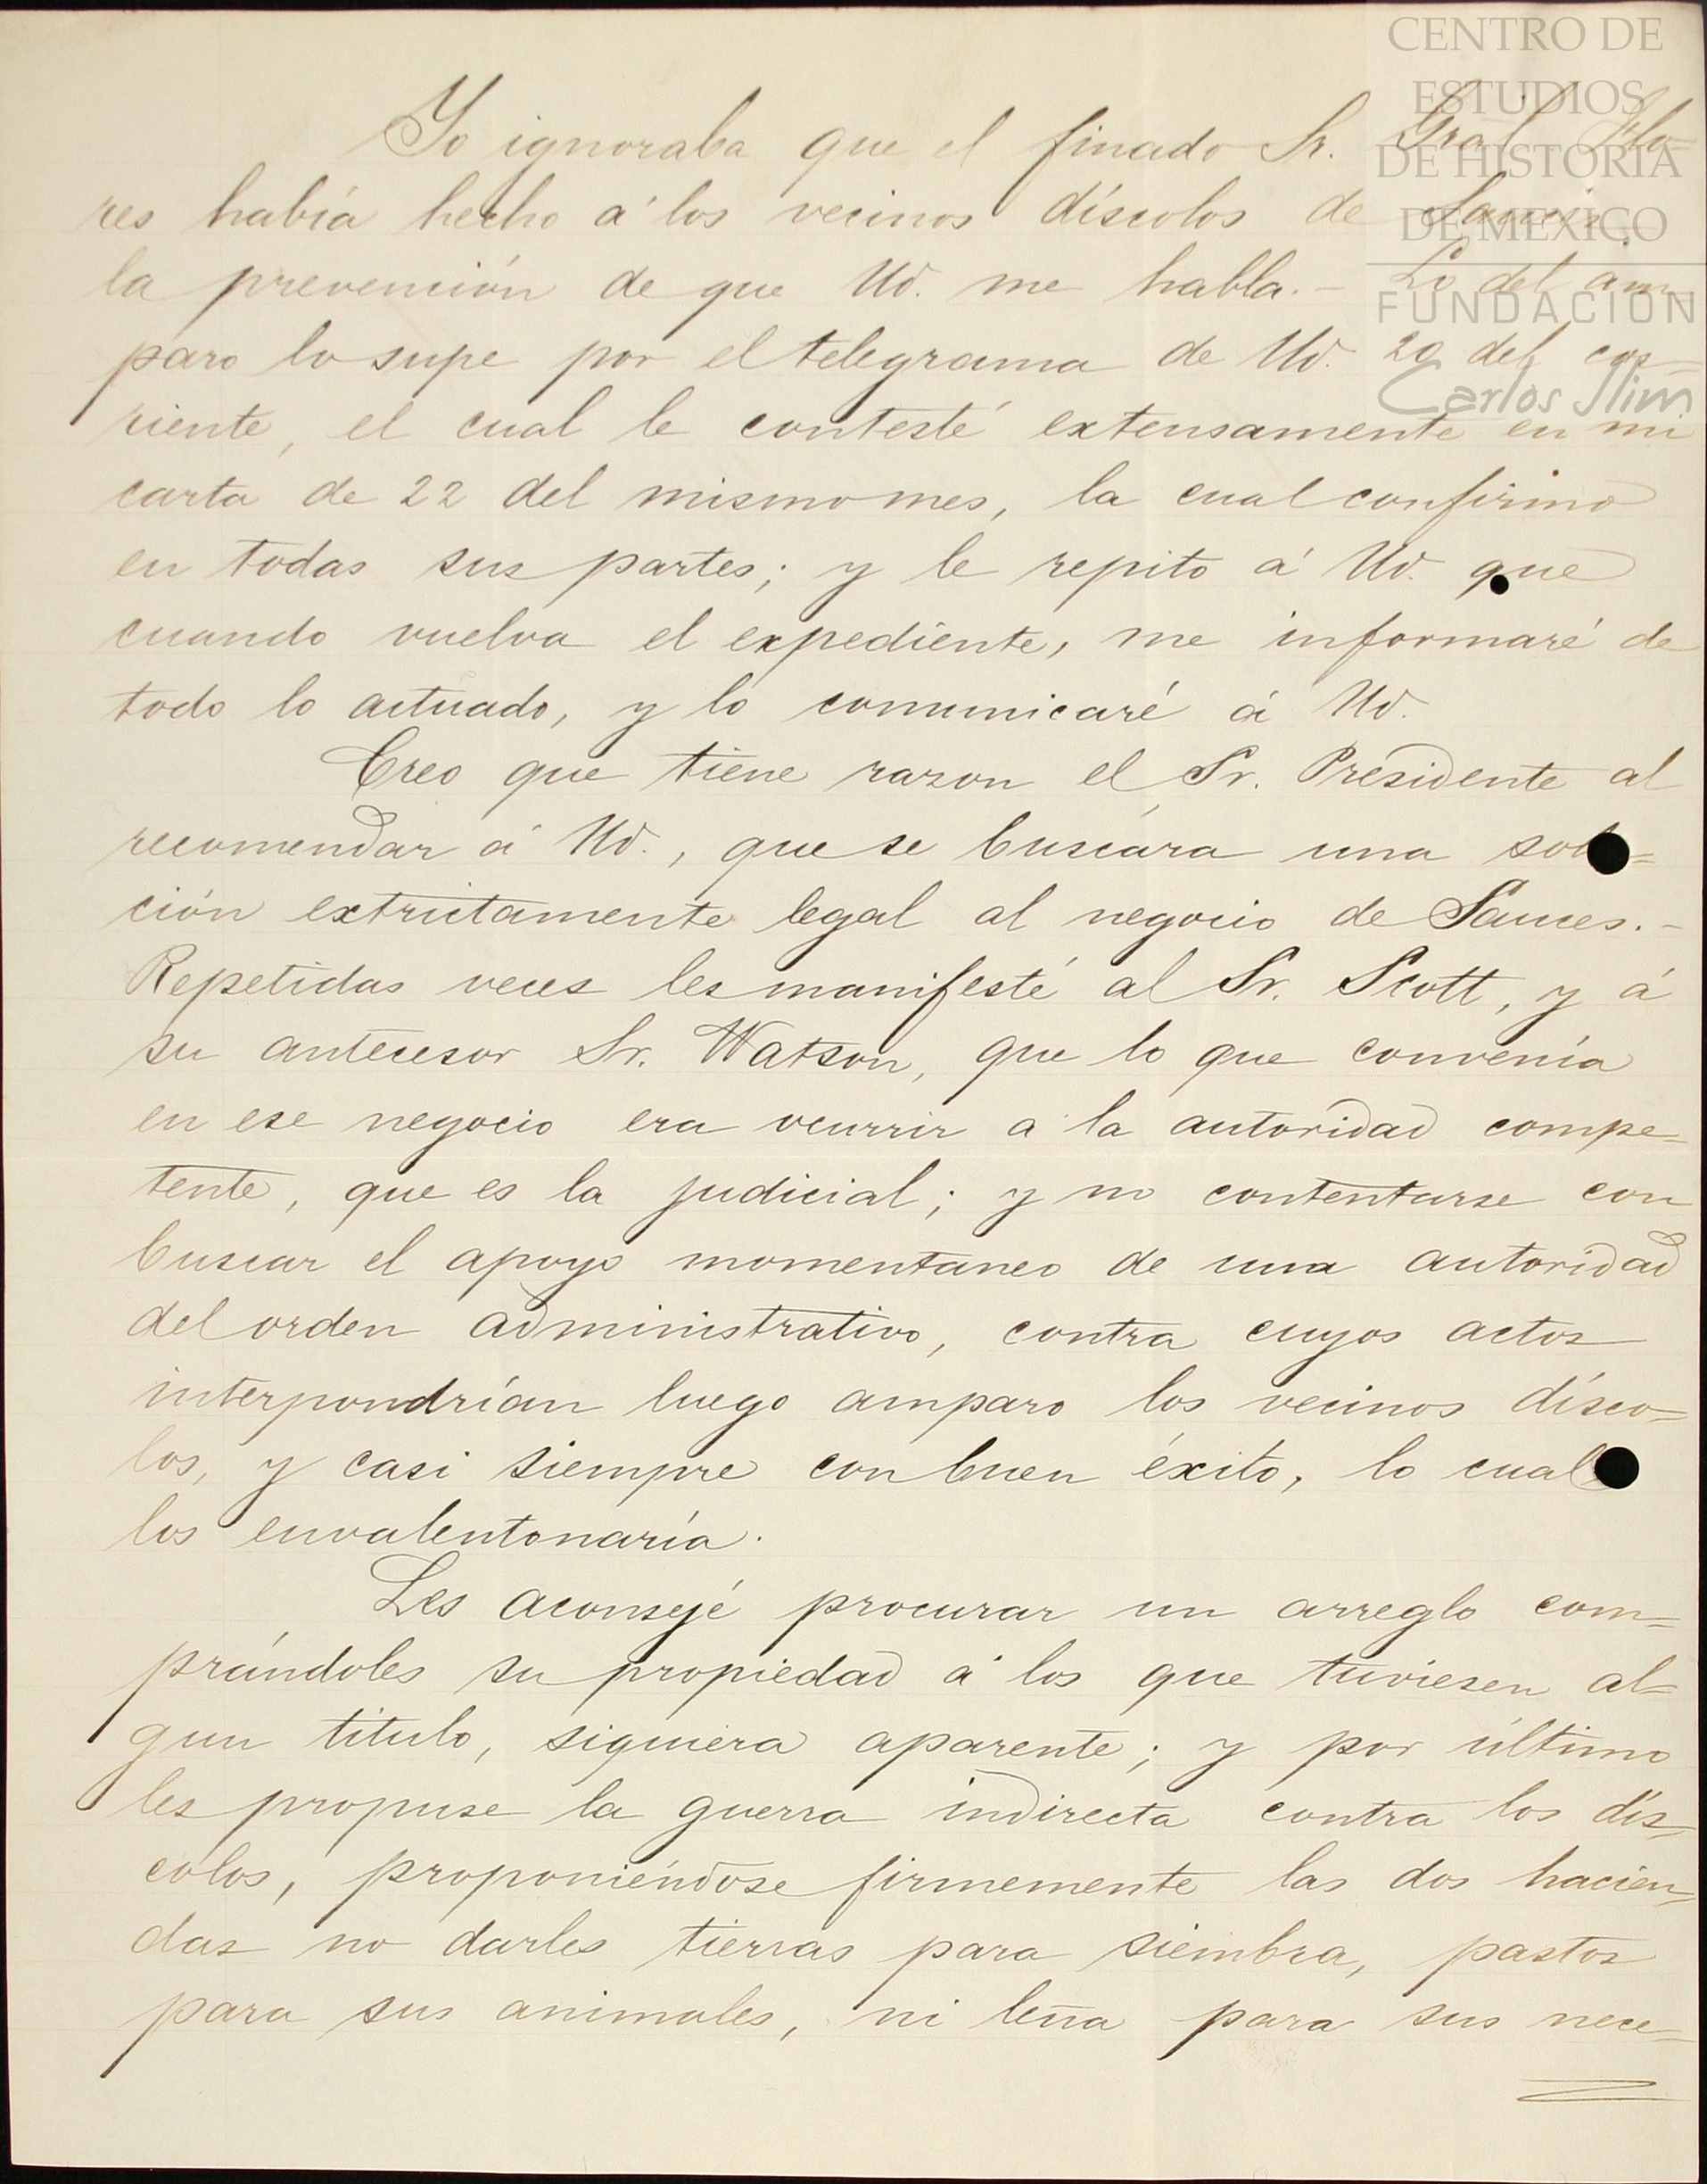 CENTRO DE
ESTUDIOS
DE HISTORIA
DE MEXICO
FUNDACION
Carlos Slim
Yo ignoraba que el finado Sr. Gral Flo-
res había hecho á los vecinos díscolos de Sauces
la prevención de que Ud. me habla.- Lo del am-
paro lo supe por el telegrama de Ud. 20 del cor-
riente, el cual le contesté extensamente en mi
carta de 22 del mismo mes, la cual confirmo
en todas sus partes; y le repito á Ud. que
cuando vuelva el expediente, me informaré de
todo lo actuado, y lo comunicaré á Ud.
Creo que tiene razon el Sr. Presidente al
recomendar á Ud., que se buscára una solu=
ción extrictamente legal al negocio de Sauces.-
Repetidas veces les manifesté al Sr. Scott, y á
su antecesor Sr. Watson, que lo que convenía
en ese negocio era ocurrir a la autoridad compe=
tente, que es la judicial; y no contentarse con
buscar el apoyo momentaneo de una autoridad
del orden administrativo, contra cuyos actos
interpondrían luego amparo los vecinos disco=
los, y casi siempre con buen éxito, lo cual
los envalentonaría.
Les aconsejé procurar un arreglo com=
prándoles su propiedad á los que tuviesen al=
gun titulo, siquiera aparente; y por último
les propuse la guerra indirecta contra los dís-
colos, proponiéndose firmemente las dos hacien-
das no darles tierras para siembra, pastos
para sus animales, ni leña para sus nece=